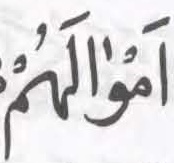 اَمْوٰالَهُمْ